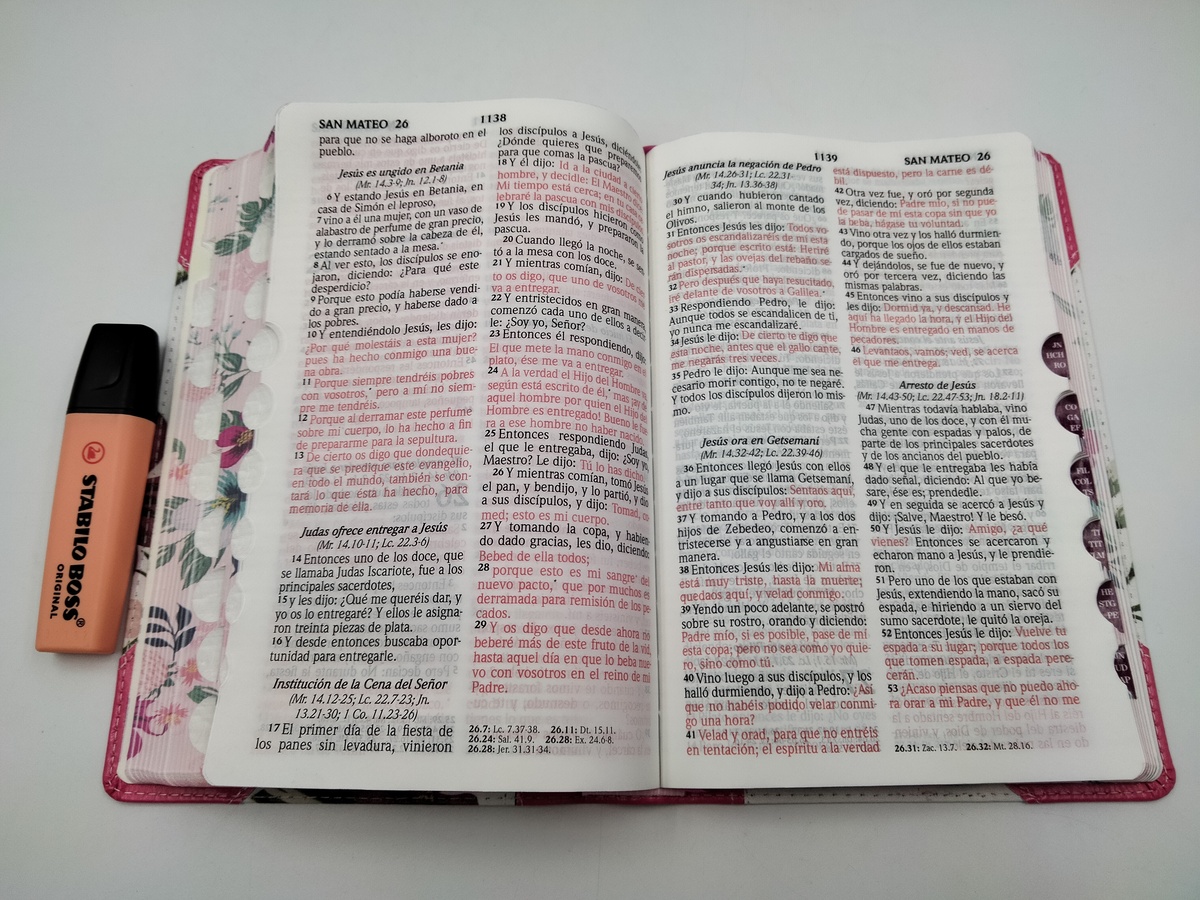 STABILO BOSS®
ORIGINAL
SAN MATEO 26
1138
para que no se haga alboroto en el
pueblo.
Jesús es ungido en Betania
(Mr. 14.3-9; Jn. 12.1-8)
6 Y estando Jesús en Betania, en
casa de Simón el leproso,
7 vino a él una mujer, con un vaso de
alabastro de perfume de gran precio,
y lo derramó sobre la cabeza de él,
estando sentado a la mesa.*
8 Al ver esto, los discípulos se eno-
jaron, diciendo: ¿Para qué este
desperdicio?
9 Porque esto podía haberse vendi-
do a gran precio, y haberse dado a
los pobres.
10 Y entendiéndolo Jesús, les dijo:
¿Por qué molestáis a esta mujer?
pues ha hecho conmigo una bue-
na obra.
11 Porque siempre tendréis pobres
con vosotros,* pero a mí no siem-
pre me tendréis.
12 Porque al derramar este perfume
sobre mi cuerpo, lo ha hecho a fin
de prepararme para la sepultura.
13 De cierto os digo que dondequie-
ra que se predique este evangelio,
en todo el mundo, también se con-
tará lo que ésta ha hecho, para
memoria de ella.
Judas ofrece entregar a Jesús
(Mr. 14.10-11; Lc. 22.3-6)
14 Entonces uno de los doce, que
se llamaba Judas Iscariote, fue a los
principales sacerdotes,
15 y les dijo: ¿Qué me queréis dar, y
yo os lo entregaré? Y ellos le asigna-
ron treinta piezas de plata.
16 Y desde entonces buscaba opor-
tunidad para entregarle.
Institución de la Cena del Señor
(Mr. 14.12-25; Lc. 22.7-23; Jn.
13.21-30; 1 Co. 11.23-26)
17 El primer día de la fiesta de
los panes sin levadura, vinieron
los discípulos a Jesús, diciéndole
¿Dónde quieres que preparemos
para que comas la pascua?
18 Y él dijo: Id a la ciudad a cierto
hombre, y decidle: El Maestro dice:
Mi tiempo está cerca; en tu casa ce-
lebraré la pascua con mis discípulos
19 Y los discípulos hicieron como
Jesús les mandó, y prepararon la
pascua.
20 Cuando llegó la noche, se sen
tó a la mesa con los doce.
21 Y mientras comían, dijo: De cier
to os digo, que uno de vosotros me
va a entregar.
22 Y entristecidos en gran manera,
comenzó cada uno de ellos a decir
le: ¿Soy yo, Señor?
23 Entonces él respondiendo, dijo:
El que mete la mano conmigo en el
plato, ése me va a entregar.
24 A la verdad el Hijo del Hombre va
según está escrito de él,* mas ¡ay de
aquel hombre por quien el Hijo del
Hombre es entregado! Bueno le fue
ra a ese hombre no haber nacido.
25 Entonces respondiendo Judas,
el que le entregaba, dijo: ¿Soy yo,
Maestro? Le dijo: Tú lo has dicho.
26 Y mientras comían, tomó Jesús
el pan, y bendijo, y lo partió, y dio
a sus discípulos, y dijo: Tomad, co
med; esto es mi cuerpo.
27 Y tomando la copa, y habien-
do dado gracias, les dio, diciendo:
Bebed de ella todos;
28 porque esto es mi sangre* del
nuevo pacto,* que por muchos es
derramada para remisión de los pe
cados.
29 Y os digo que desde ahora no
beberé más de este fruto de la vid,
hasta aquel día en que lo beba nue-
vo con vosotros en el reino de mi
Padre.
26.7: Lc. 7.37-38. 26.11: Dt. 15.11.
26.24: Sal. 41.9. 26.28: Ex. 24.6-8.
26.28: Jer. 31.31-34.
1139
SAN MATEO 26
Jesús anuncia la negación de Pedro
(Mr. 14.26-31; Lc. 22.31-
34; Jn. 13.36-38)
30 Y cuando hubieron cantado
el himno, salieron al monte de los
Olivos.
31 Entonces Jesús les dijo: Todos vo-
sotros os escandalizaréis de mí esta
noche; porque escrito está: Heriré
al pastor, y las ovejas del rebaño se-
rán dispersadas.*
32 Pero después que haya resucitado,
iré delante de vosotros a Galilea.*
33 Respondiendo Pedro, le dijo:
Aunque todos se escandalicen de ti,
yo nunca me escandalizaré.
34 Jesús le dijo: De cierto te digo que
esta noche, antes que el gallo cante,
me negarás tres veces.
35 Pedro le dijo: Aunque me sea ne-
cesario morir contigo, no te negaré.
Y todos los discípulos dijeron lo mis-
mo.
Jesús ora en Getsemaní
(Mr. 14.32-42; Lc. 22.39-46)
36 Entonces llegó Jesús con ellos
a un lugar que se llama Getsemaní,
y dijo a sus discípulos: Sentaos aquí,
entre tanto que voy allí y oro.
37 Y tomando a Pedro, y a los dos
hijos de Zebedeo, comenzó a en-
tristecerse y a angustiarse en gran
manera.
38 Entonces Jesús les dijo: Mi alma
está muy triste, hasta la muerte;
quedaos aquí, y velad conmigo.
39 Yendo un poco adelante, se postró
sobre su rostro, orando y diciendo:
Padre mío, si es posible, pase de mí
esta copa; pero no sea como yo quie-
ro, sino como tú.
40 Vino luego a sus discípulos, y los
halló durmiendo, y dijo a Pedro: ¿Así
que no habéis podido velar conmi-
go una hora?
41 Velad y orad, para que no entréis
en tentación; el espíritu a la verdad
está dispuesto, pero la carne es dé-
bil.
42 Otra vez fue, y oró por segunda
vez, diciendo: Padre mío, si no pue-
de pasar de mí esta copa sin que yo
la beba, hágase tu voluntad.
43 Vino otra vez y los halló durmien-
do, porque los ojos de ellos estaban
cargados de sueño.
44 Y dejándolos, se fue de nuevo, y
oró por tercera vez, diciendo las
mismas palabras.
45 Entonces vino a sus discípulos y
les dijo: Dormid ya, y descansad. He
aquí ha llegado la hora, y el Hijo del
Hombre es entregado en manos de
pecadores.
46 Levantaos, vamos; ved, se acerca
el que me entrega.
Arresto de Jesús
(Mr. 14.43-50; Lc. 22.47-53; Jn. 18.2-11)
47 Mientras todavía hablaba, vino
Judas, uno de los doce, y con él mu-
cha gente con espadas y palos, de
parte de los principales sacerdotes
y de los ancianos del pueblo.
48 Y el que le entregaba les había
dado señal, diciendo: Al que yo be-
sare, ése es; prendedle.
49 Y en seguida se acercó a Jesús y
dijo: ¡Salve, Maestro! Y le besó.
50 Y Jesús le dijo: Amigo, ¿a qué
vienes? Entonces se acercaron y
echaron mano a Jesús, y le prendie-
ron.
51 Pero uno de los que estaban con
Jesús, extendiendo la mano, sacó su
espada, e hiriendo a un siervo del
sumo sacerdote, le quitó la oreja.
52 Entonces Jesús le dijo: Vuelve tu
espada a su lugar; porque todos los
que tomen espada, a espada pere-
cerán.
53 ¿Acaso piensas que no puedo aho-
ra orar a mi Padre, y que él no me
26.31: Zac. 13.7. 26.32: Mt. 28.16.
JN
HCH
RO
CO
GA
EF
FIL
COL
TS
TI
TIT
HE
STG
PE